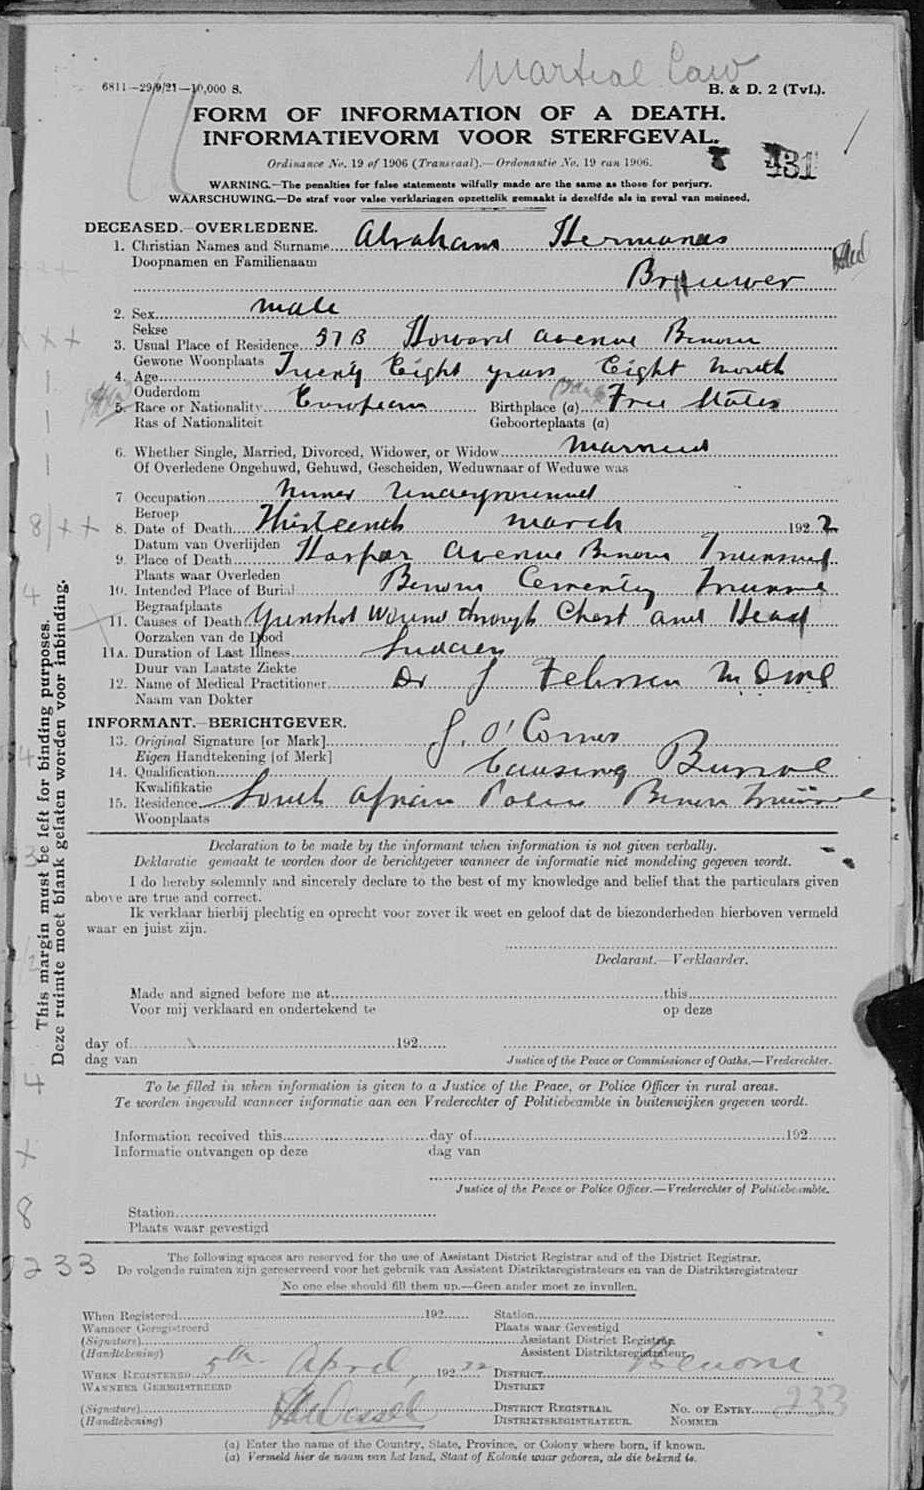 Martial Law
6811—29/9/21—10,000 S.
B. & D. 2 (Tvl.).
FORM OF INFORMATION OF A DEATH.
INFORMATIEVORM VOOR STERFGEVAL.
Ordinance No. 19 of 1906 (Transvaal).—Ordonantie No. 19 van 1906.
431
WARNING.—The penalties for false statements wilfully made are the same as those for perjury.
WAARSCHUWING.—De straf voor valse verklaringen opzettelik gemaakt is dezelfde als in geval van meineed.
DECEASED.—OVERLEDENE.
1. Christian Names and Surname Abraham Hermanus
Doopnamen en Familienaam
Brouwer
2. Sex male
Sekse
3. Usual Place of Residence 37B Howard Avenue Benoni
Gewone Woonplaats
4. Age Twenty Eight years Eight Month
Ouderdom
5. Race or Nationality European Birthplace (a) Orange Free State
Ras of Nationaliteit Geboorteplaats (a)
6. Whether Single, Married, Divorced, Widower, or Widow Married
Of Overledene Ongehuwd, Gehuwd, Gescheiden, Weduwnaar of Weduwe was
7 Occupation Miner Underground
Beroep
8. Date of Death Thirteenth March 1922
Datum van Overlijden
9. Place of Death Harpur Avenue Benoni Transvaal
Plaats waar Overleden
10. Intended Place of Burial Benoni Cemetery Transvaal
Begraafplaats
11. Causes of Death Gunshot Wound through Chest and Head
Oorzaken van de Dood
11A. Duration of Last Illness Sudden
Duur van Laatste Ziekte
12. Name of Medical Practitioner Dr J
Naam van Dokter
INFORMANT.—BERICHTGEVER.
13. Original Signature [or Mark] J. O'Connor
Eigen Handtekening [of Merk]
14. Qualification Causing Burial
Kwalifikatie
15. Residence South African Police Benoni Transvaal
Woonplaats
Declaration to be made by the informant when information is not given verbally.
Deklaratie gemaakt te worden door de berichtgever wanneer de informatie niet mondeling gegeven wordt.
I do hereby solemnly and sincerely declare to the best of my knowledge and belief that the particulars given
above are true and correct.
Ik verklaar hierbij plechtig en oprecht voor zover ik weet en geloof dat de biezonderheden hierboven vermeld
waar en juist zijn.
Declarant.—Verklaarder.
Made and signed before me at this
Voor mij verklaard en ondertekend te op deze
day of 192
dag van
Justice of the Peace or Commissioner of Oaths.—Vrederechter.
To be filled in when information is given to a Justice of the Peace, or Police Officer in rural areas.
Te worden ingevuld wanneer informatie aan een Vrederechter of Politiebeambte in buitenwijken gegeven wordt.
Information received this day of 192
Informatie ontvangen op deze dag van
Justice of the Peace or Police Officer.—Vrederechter of Politiebeambte.
Station
Plaats waar gevestigd
The following spaces are reserved for the use of Assistant District Registrar and of the District Registrar.
De volgende ruimten zijn gereserveerd voor het gebruik van Assistent Distriktsregistrateurs en van de Distriktsregistrateur
No one else should fill them up.—Geen ander moet ze invullen.
When Registered 192 Station
Wanneer Geregistreerd Plaats waar Gevestigd
(Signature) Assistant District Registrar
(Handtekening) Assistent Distriktsregistrateur
WHEN REGISTERED 5th April, 192 22 DISTRICT Benoni
WANNEER GEREGISTREERD DISTRIKT
(Signature) DISTRICT REGISTRAR. No. OF ENTRY 233
(Handtekening) DISTRIKTSREGISTRATEUR. NOMMER
(a) Enter the name of the Country, State, Province, or Colony where born, if known.
(a) Vermeld hier de naam van het land, Staat of Kolonie waar geboren, als die bekend is.
This margin must be left for binding purposes.
Deze ruimte moet blank gelaten worden voor inbinding.
8/++
4
4
+
8
233